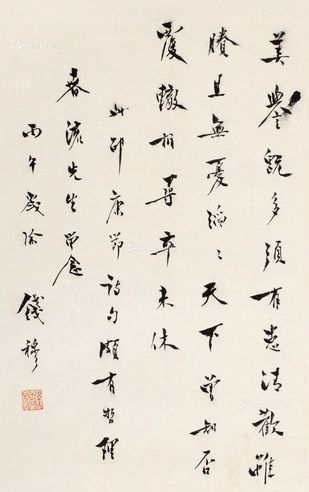 美譽既多須有患清歡雖
賸且無憂滔〻天下曾知否
覆轍相尋卒未休
此邵康節詩句頗有哲理
春流先生留念
丙午歲除
錢穆